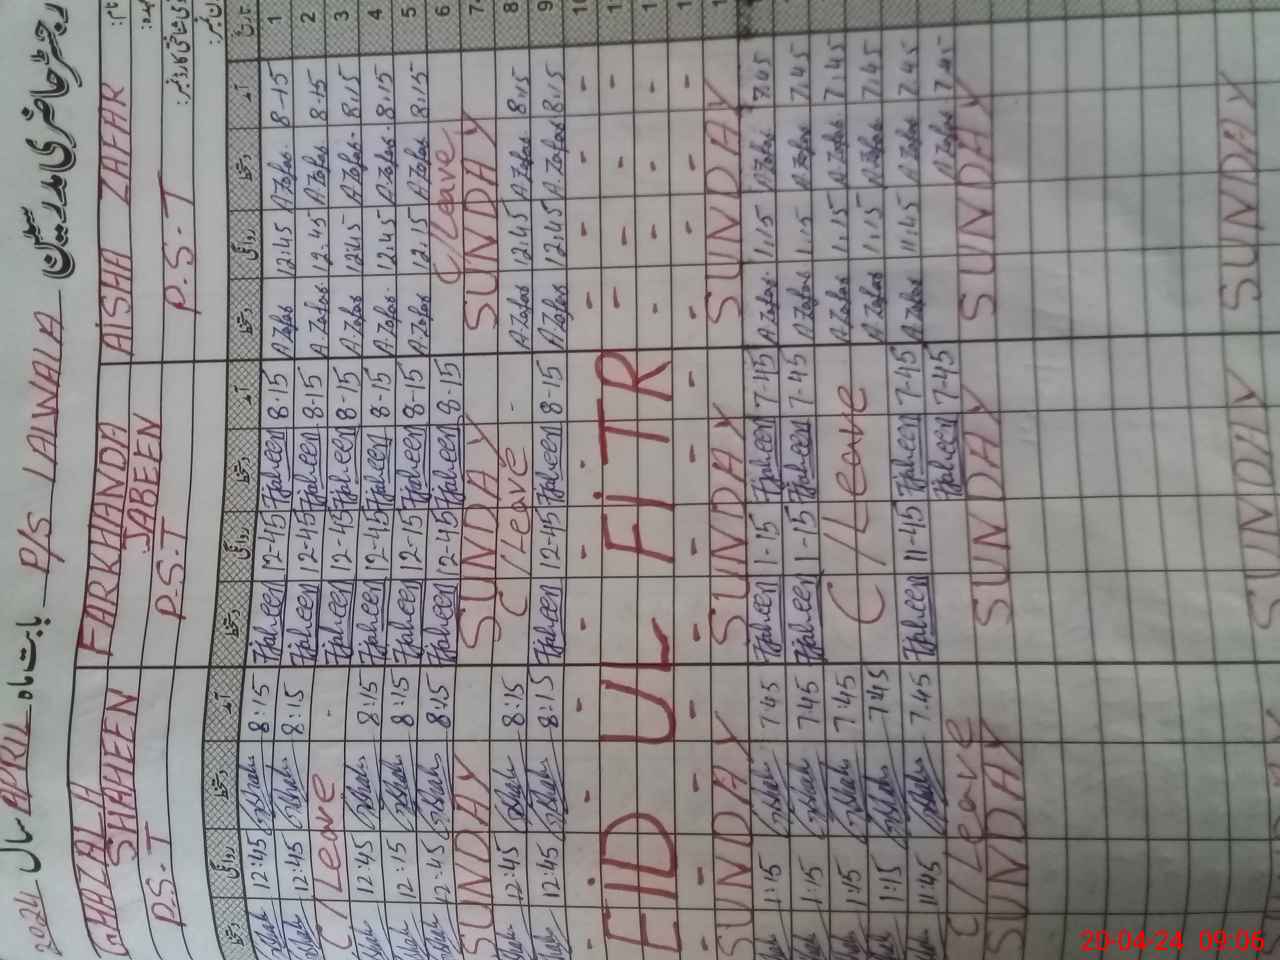 2024 سال APRIL بابت ماہ P/S LAIWALA رجسٹر حاضری مدرسین
GHAZALA SHAHEEN FARKHANDA JABEEN AISHA ZAFAR
P.S.T P.S.T P.S.T
دستخط روانگی دستخط آمد دستخط روانگی دستخط آمد دستخط روانگی دستخط آمد
12:45 8:15 Fjabeen 12-45 Fjabeen 8-15 A.Zafar 12:45 A.Zafar 8-15 1
12:45 8:15 Fjabeen 12-45 Fjabeen 8-15 A.Zafar 12.45 A.Zafar 8.15 2
C/Leave - Fjabeen 12-45 Fjabeen 8-15 A.Zafar 12:45 A.Zafar 8.15 3
12:45 8:15 Fjabeen 12-45 Fjabeen 8-15 A.Zafar 12.45 A.Zafar 8.15 4
12:15 8:15 Fjabeen 12-15 Fjabeen 8-15 A.Zafar 12.15 A.Zafar 8.15 5
12:45 8:15 Fjabeen 12-45 Fjabeen 8-15 C/Leave 6
SUNDAY SUNDAY SUNDAY 7
12:45 8:15 C/Leave - A.Zafar 12:45 A.Zafar 8:15 8
12:45 8:15 Fjabeen 12-45 Fjabeen 8-15 A.Zafar 12.45 A.Zafar 8.15 9
EID UL FITR
SUNDAY SUNDAY SUNDAY
1:15 7:45 Fjabeen 1-15 Fjabeen 7-45 A.Zafar 1.15 A.Zafar 7.45
1:15 7:45 Fjabeen 1-15 Fjabeen 7-45 A.Zafar 1.15 A.Zafar 7.45
1:15 7:45 C/Leave A.Zafar 1.15 A.Zafar 7.45
1:15 7:45 A.Zafar 1.15 A.Zafar 7.45
11:45 7.45 Fjabeen 11-45 Fjabeen 7-45 A.Zafar 11.45 A.Zafar 7.45
C/Leave Fjabeen 7-45 A.Zafar 7.45
SUNDAY SUNDAY SUNDAY
SUNDAY SUNDAY
20-04-24 09:06